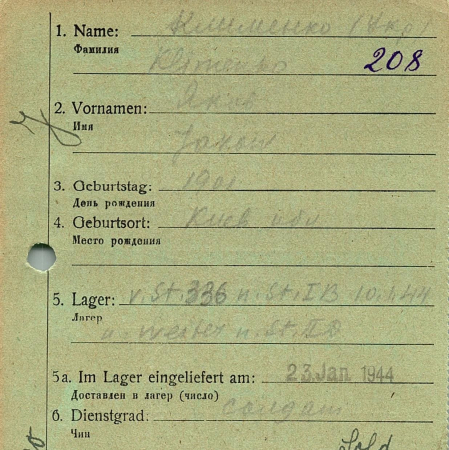 1. Name: Клименко (Укр)
Фамилия
Klimenko 208
2. Vornamen: Яков
Имя
Jakow
3. Geburtstag: 1901
День рождения
4. Geburtsort: Киев обл
Место рождения
5. Lager: v. St. 336 n. St. IB 10.1.44
Лагерь
u. weiter n. St. II D
5a. Im Lager eingeliefert am: 23. Jan. 1944
Доставлен в лагерь (число)
6. Dienstgrad: солдат
Чин
Sold